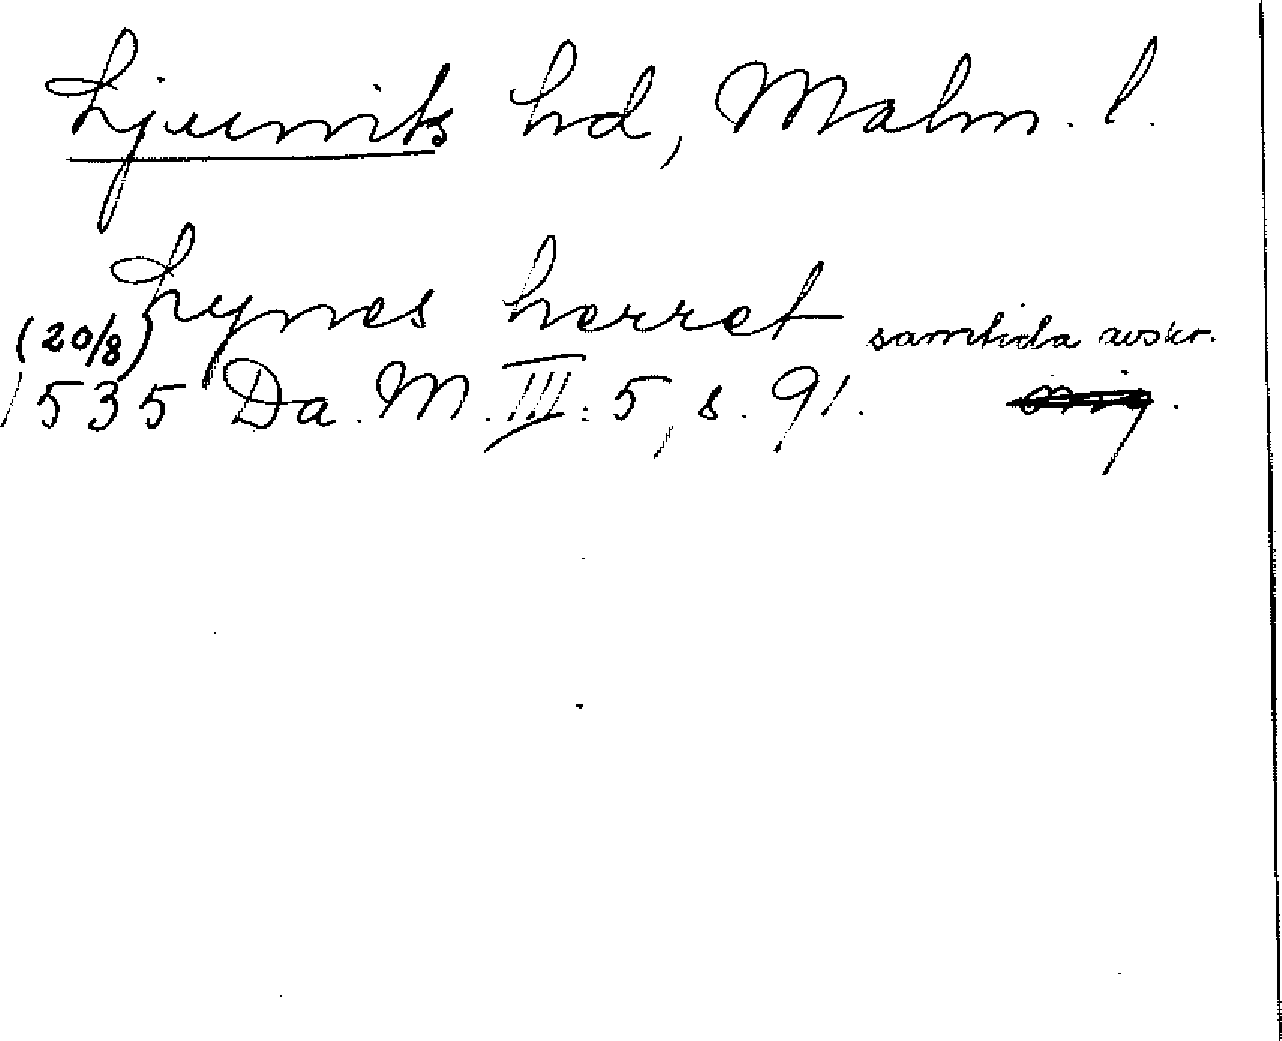 Ljunits hd, Malm. l.
Lynes herret samtida avskr.
(20/8)
1535 Da. M. III: 5, s. 91.